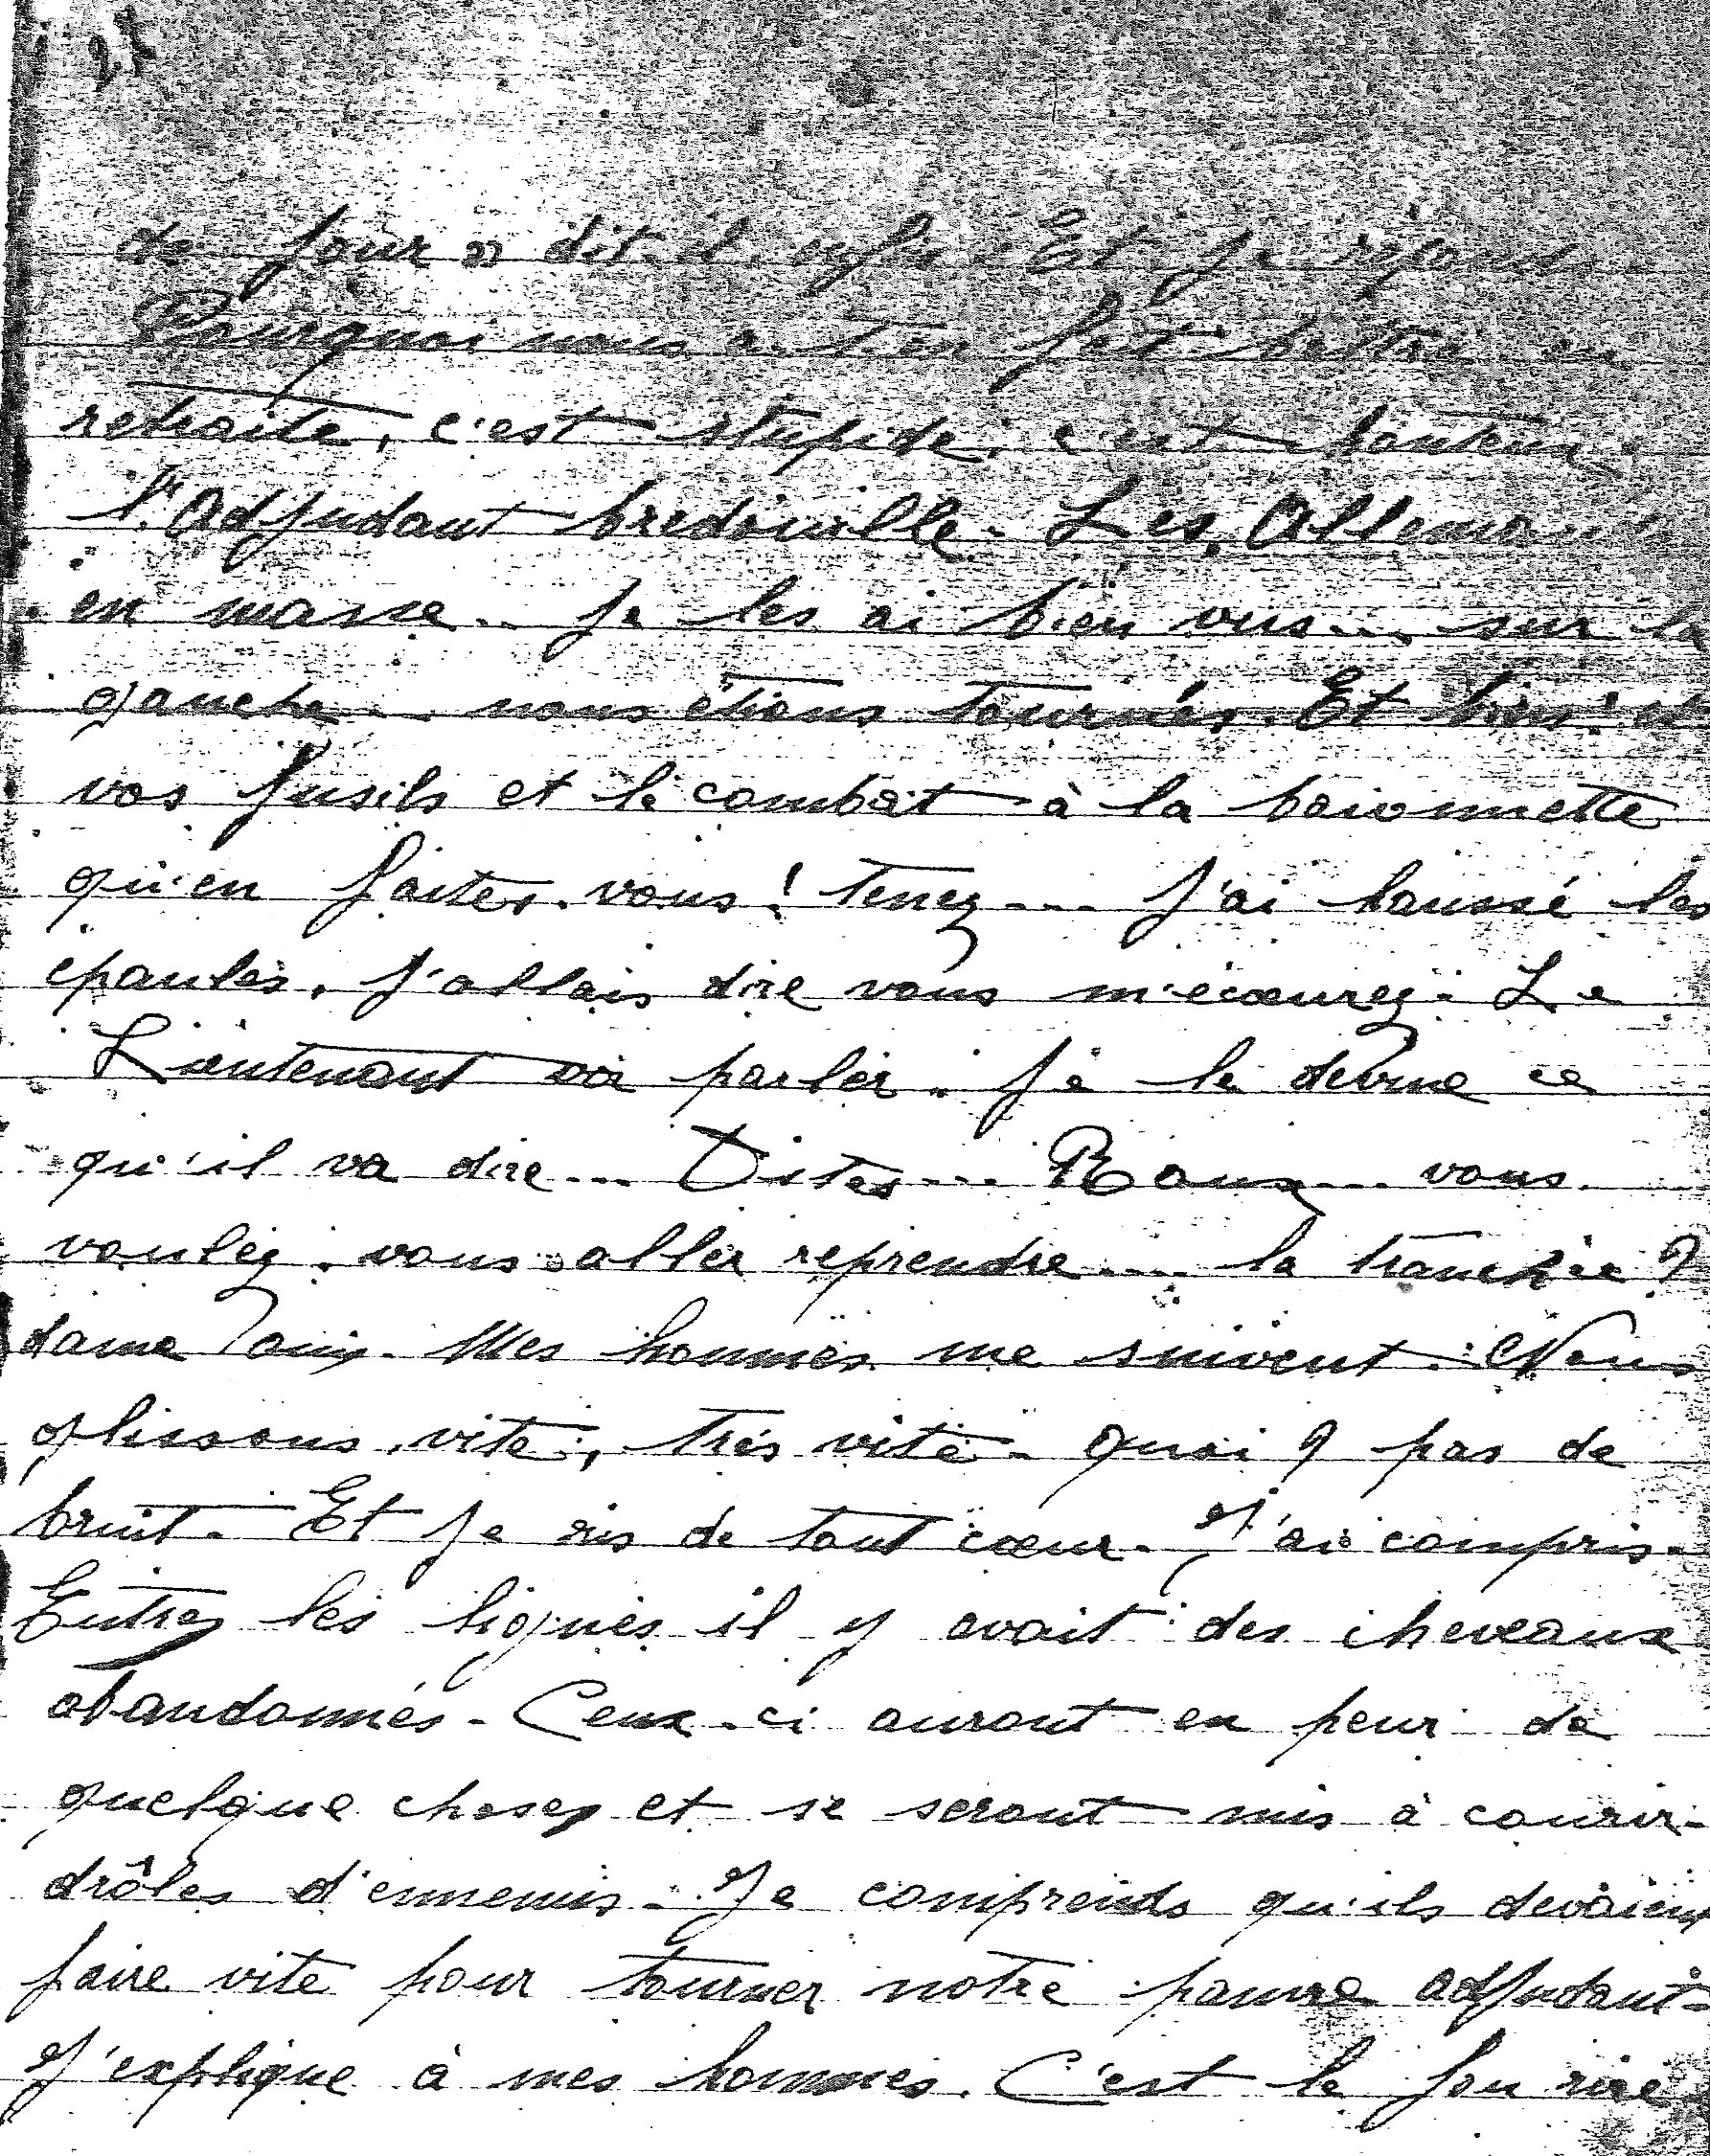 27
de jour » dit-il enfin Et je réponds
Pourquoi nous a-t-on fait battre en
retraite, c'est stupide, c'est honteux.
l'Adjudant bredouille. Les Allemands
en masse.. Je les ai bien vus... sur la
gauche... nous étions tournés. Et bien! et
vos fusils et le combat à la baionnette
qu'en faites-vous! Tenez... J'ai haussé les
epaules, J'allais dire vous m'écœurez. Le
Lieutenant va parler. Je le devine ce
qu'il va dire... Dites... Roux... vous
voulez-vous aller reprendre.... la tranchée?
dame oui. Mes hommes me suivent. Nous
glissons vite, très vite. Quoi? pas de
bruit. Et Je ris de tout cœur. J'ai compris.
Entre les lignes il y avait des cheveaux
abandonnés. Ceux-ci auront eu peur de
quelque chose et se seront mis à courir.
drôles d'ennemis. Je comprends qu'ils devaient
faire vite pour tourner notre pauvre adjudant.
J'explique à mes hommes. C'est le fou rire